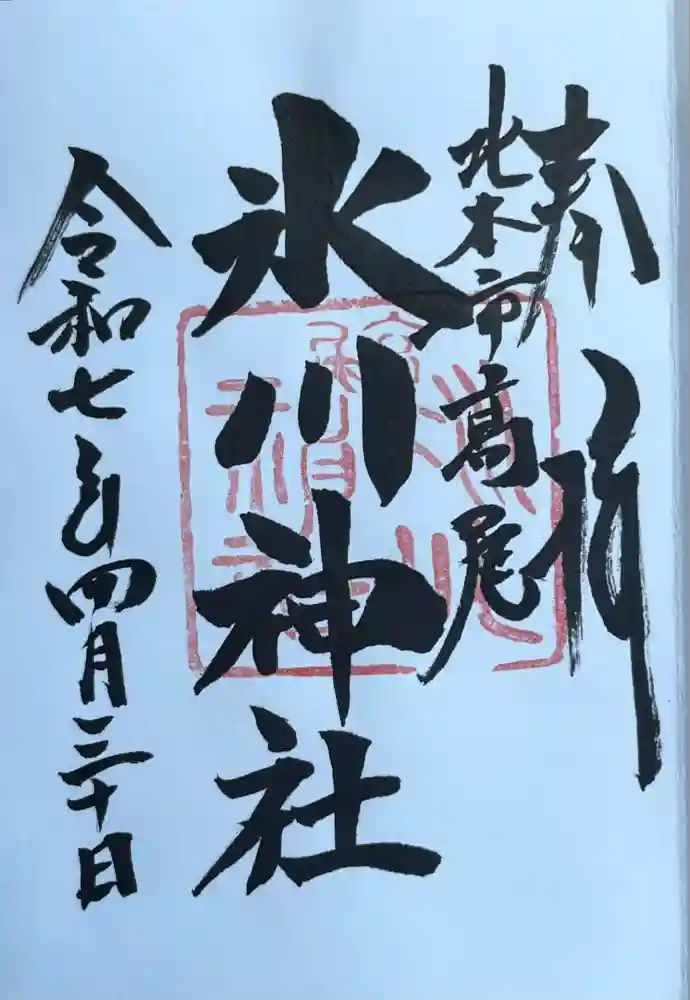 奉拝
北本市高尾
氷川神社
令和七年四月三十日